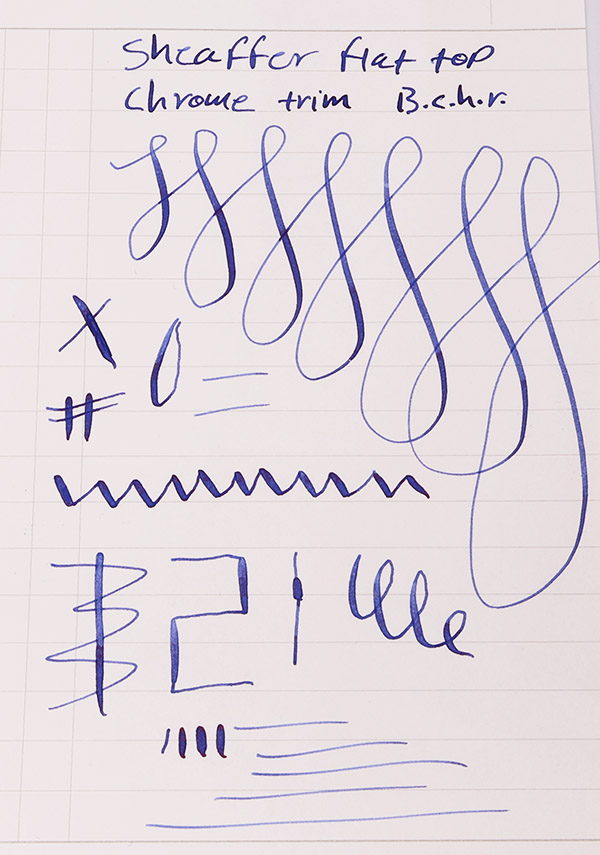 Sheaffer flat top
Chrome trim B.c.h.r.
X
#